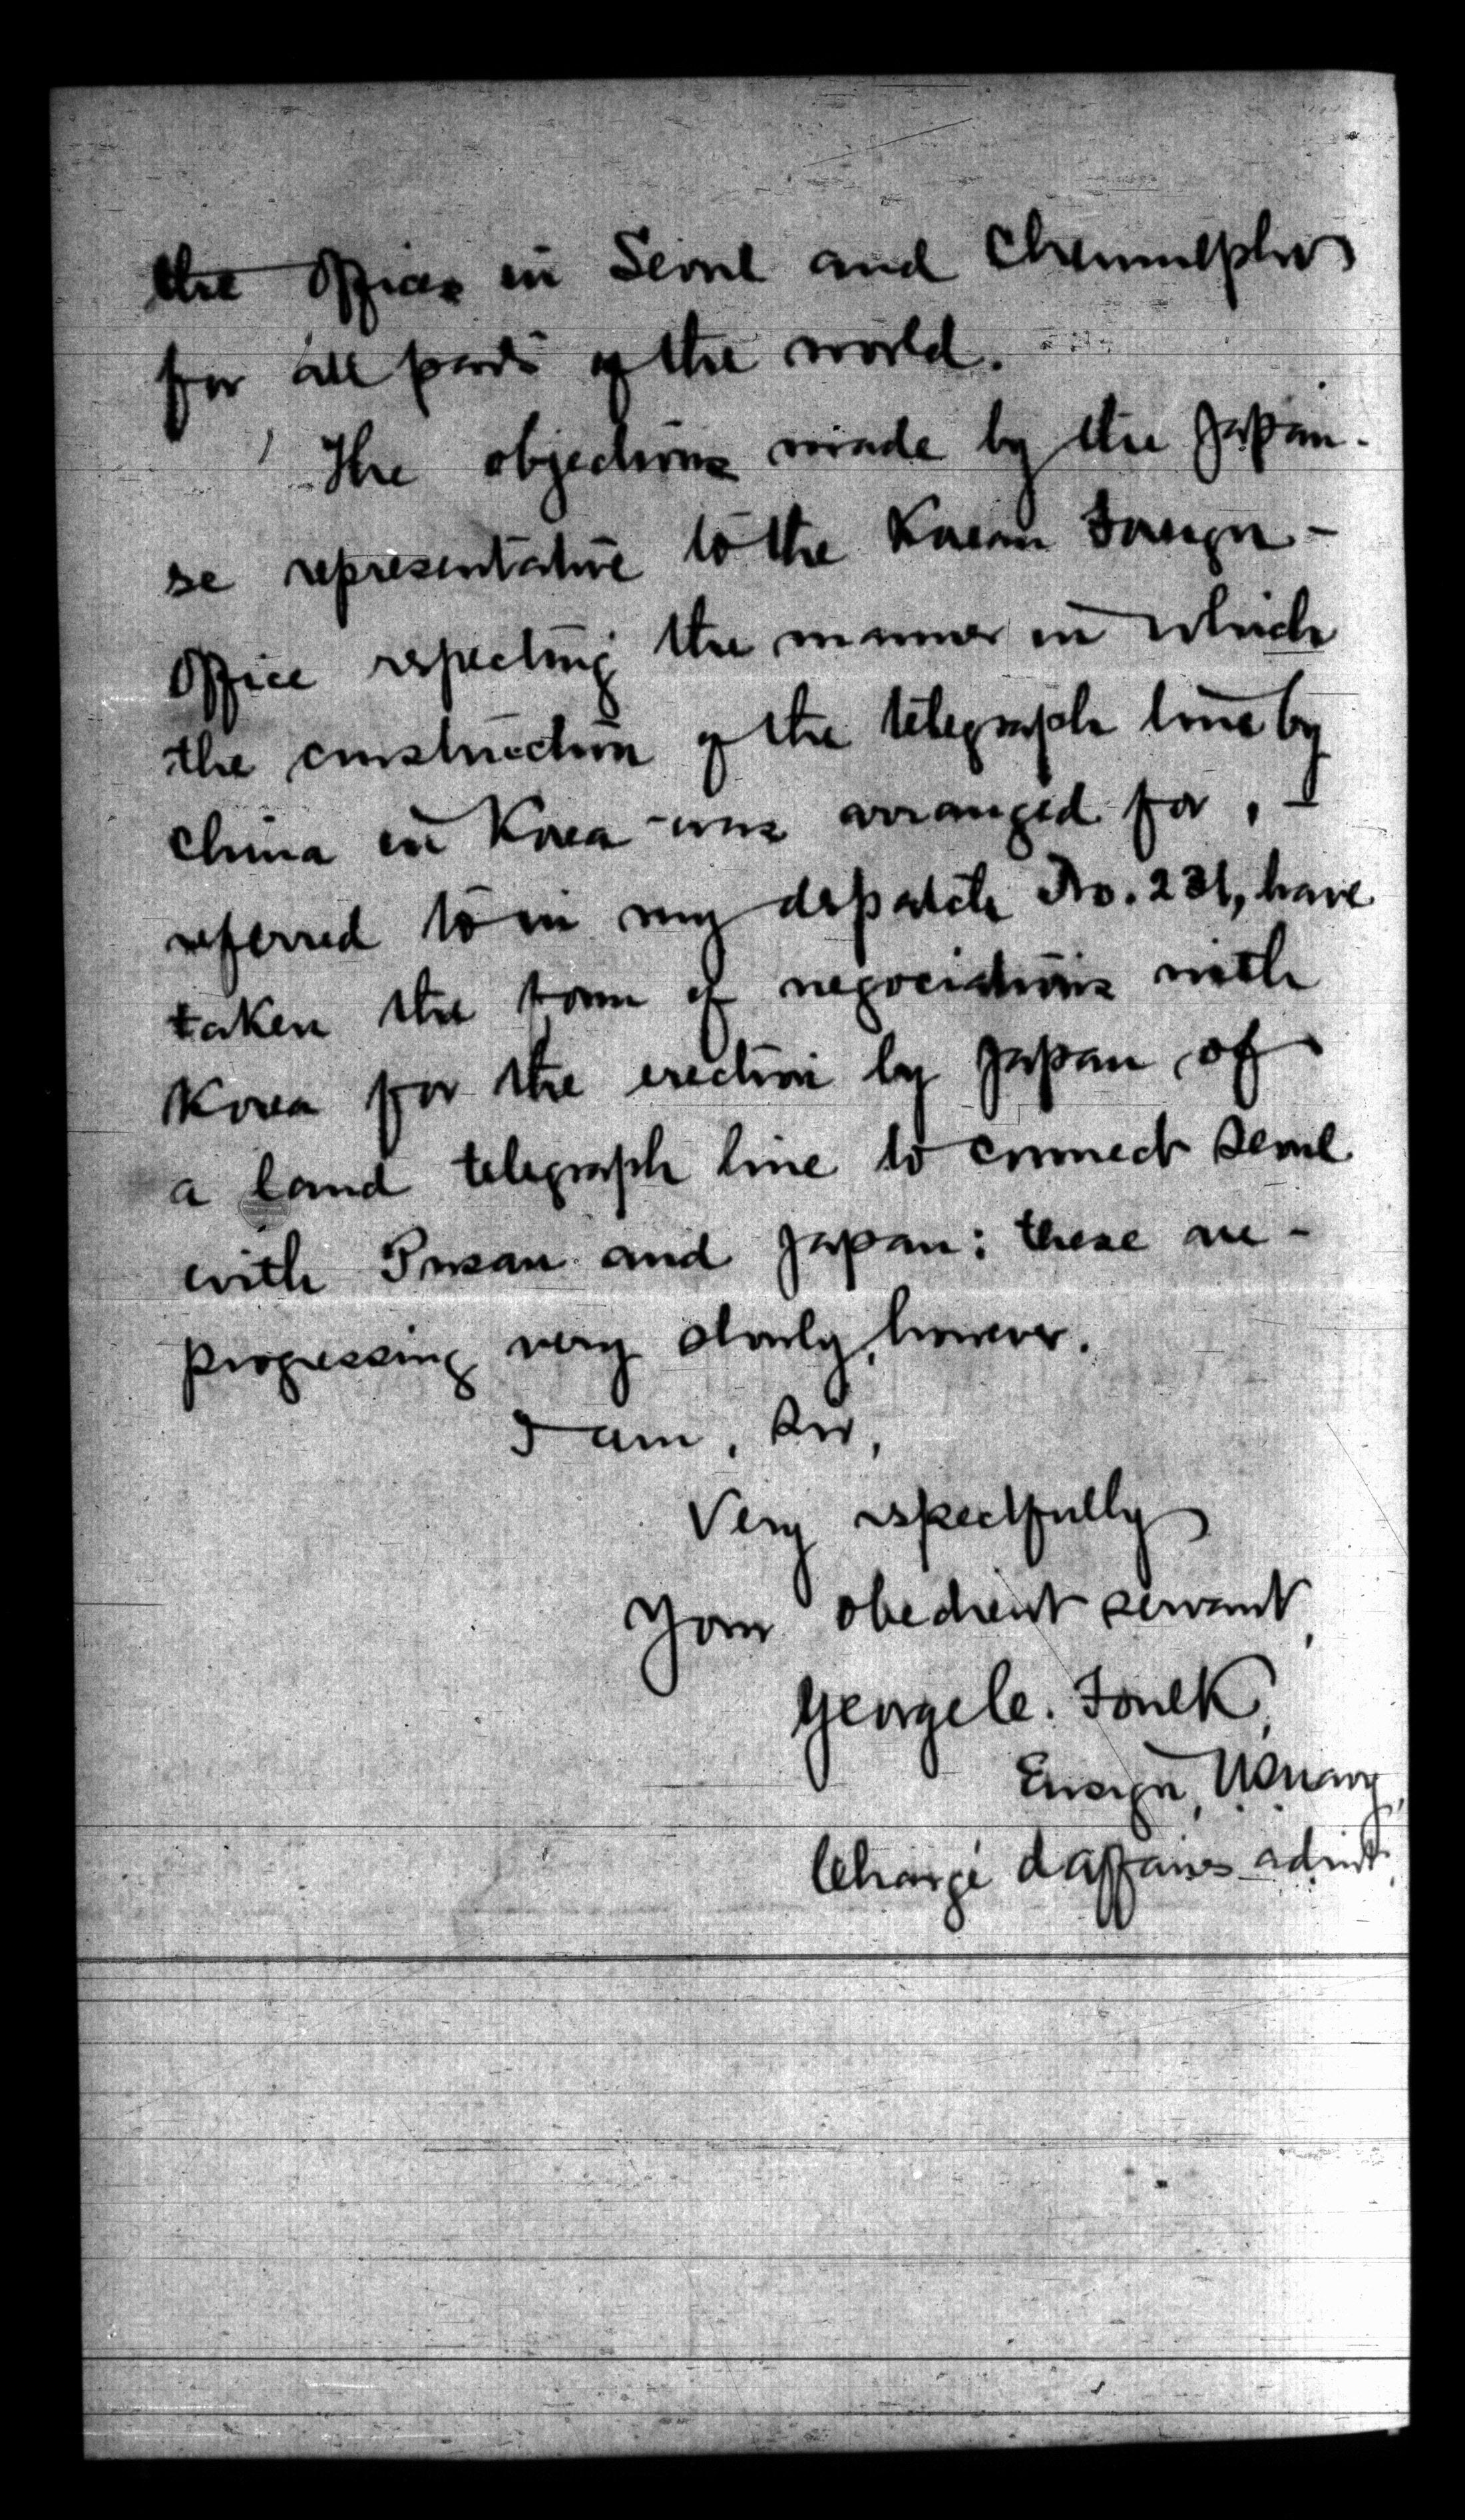 the offices in Seoul and Chemulpho
for all parts of the world.
The objections made by the Japan-
se representative to the Korean Foreign -
Office respecting the manner in which
the construction of the telegraph line by
China in Korea was arranged for, -
referred to in my despatch No. 231, have
taken the form of negociations with
Korea for the erection by Japan of
a land telegraph line to connect Seoul
with Pusan and Japan: these are -
progressing very slowly, however.
I am, Sir,
Very respectfully
Your obedient servant,
George C. Foulk,
Ensign, U.S. Navy,
Chargé d'affaires ad int.